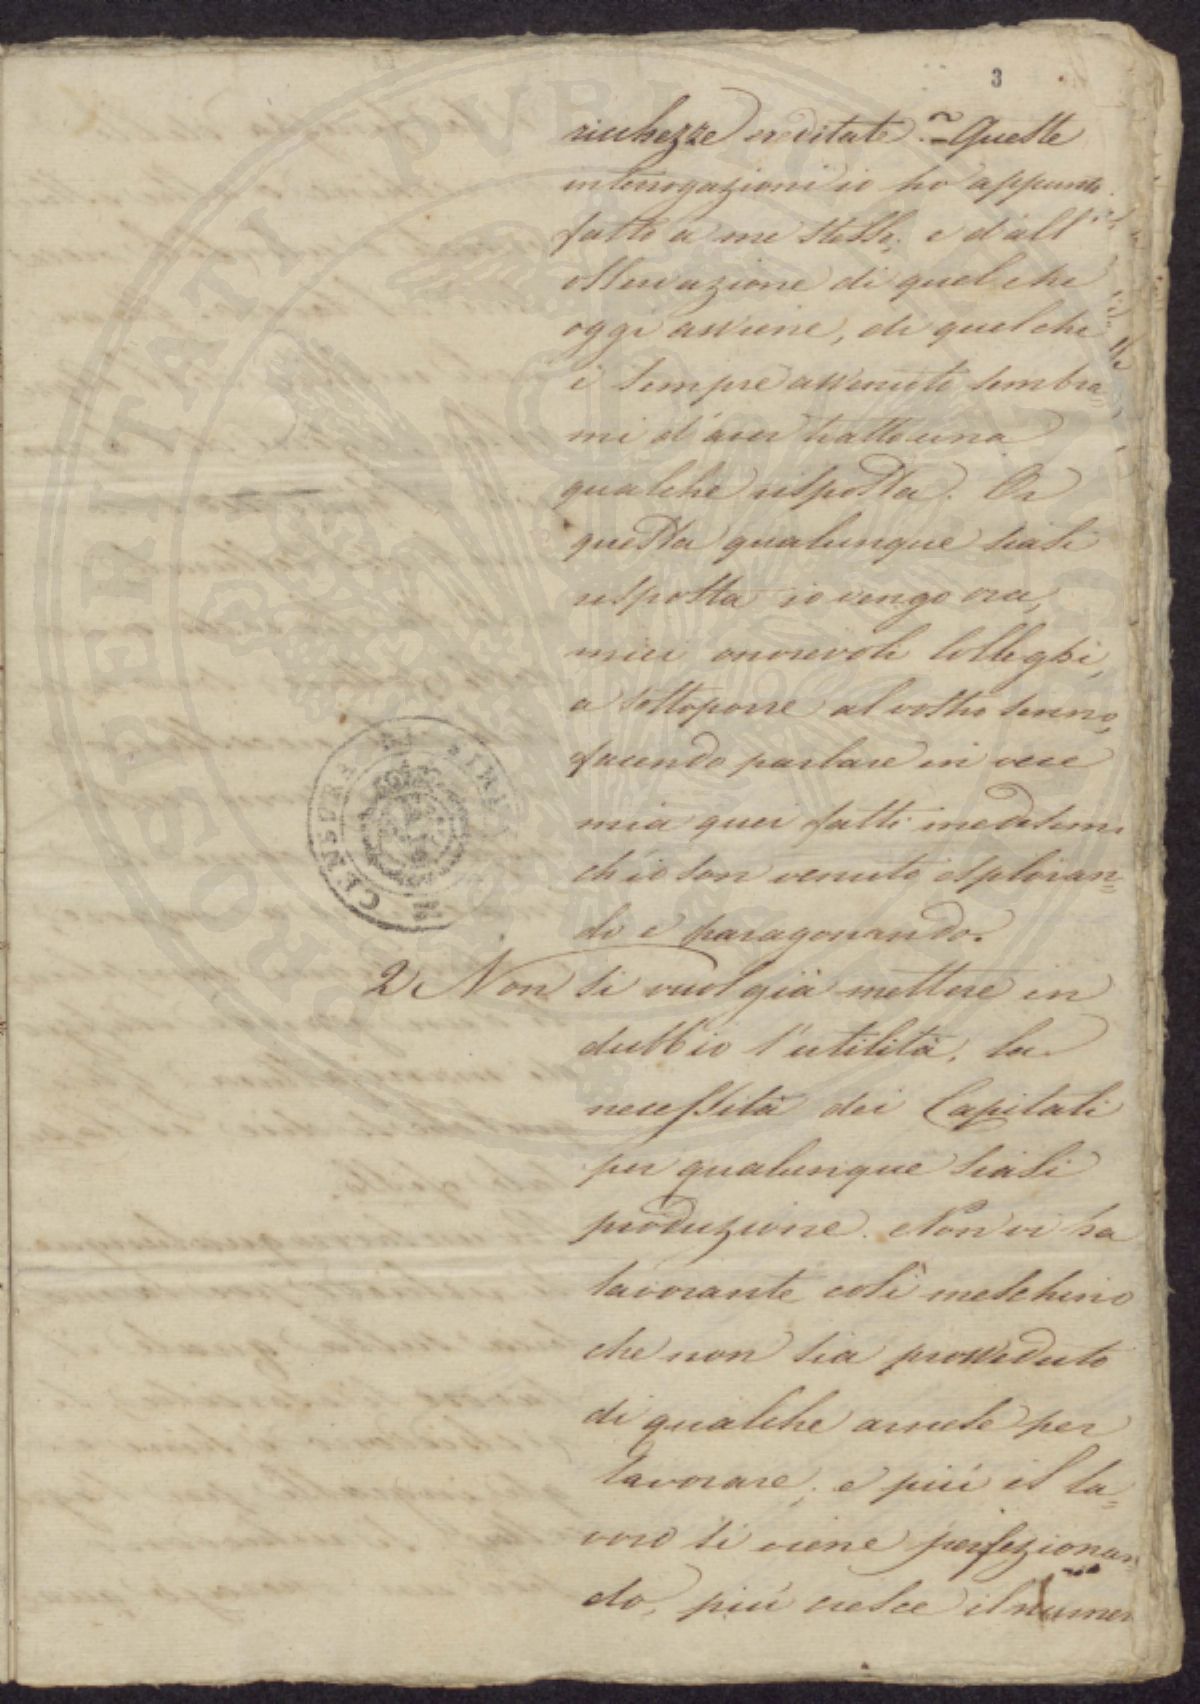 3
ricchezze ereditate. = Queste
interrogazioni io ho appunto
fatto a me stesso; e dall'
osservazione di quel che
oggi avviene, di quel che
è sempre avvenuto sembra
mi d'aver tratto una
qualche risposta. Or
questa qualunque siasi
risposta io vengo ora,
miei onorevoli Colleghi,
a sottoporre al vostro senno,
facendo parlare in vece
mia quei fatti medesimi
ch'io son venuto esploran=
do e paragonando.
2 Non si vuol già mettere in
dubbio l'utilità, la
necessità dei Capitali
per qualunque siasi
produzione. Non vi ha
lavorante così meschino
che non sia provveduto
di qualche arnese per
lavorare; e più il la=
voro si viene perfezionan
do, più cresce il numer
PROSPERITATI PVBLICAE
CENSURA